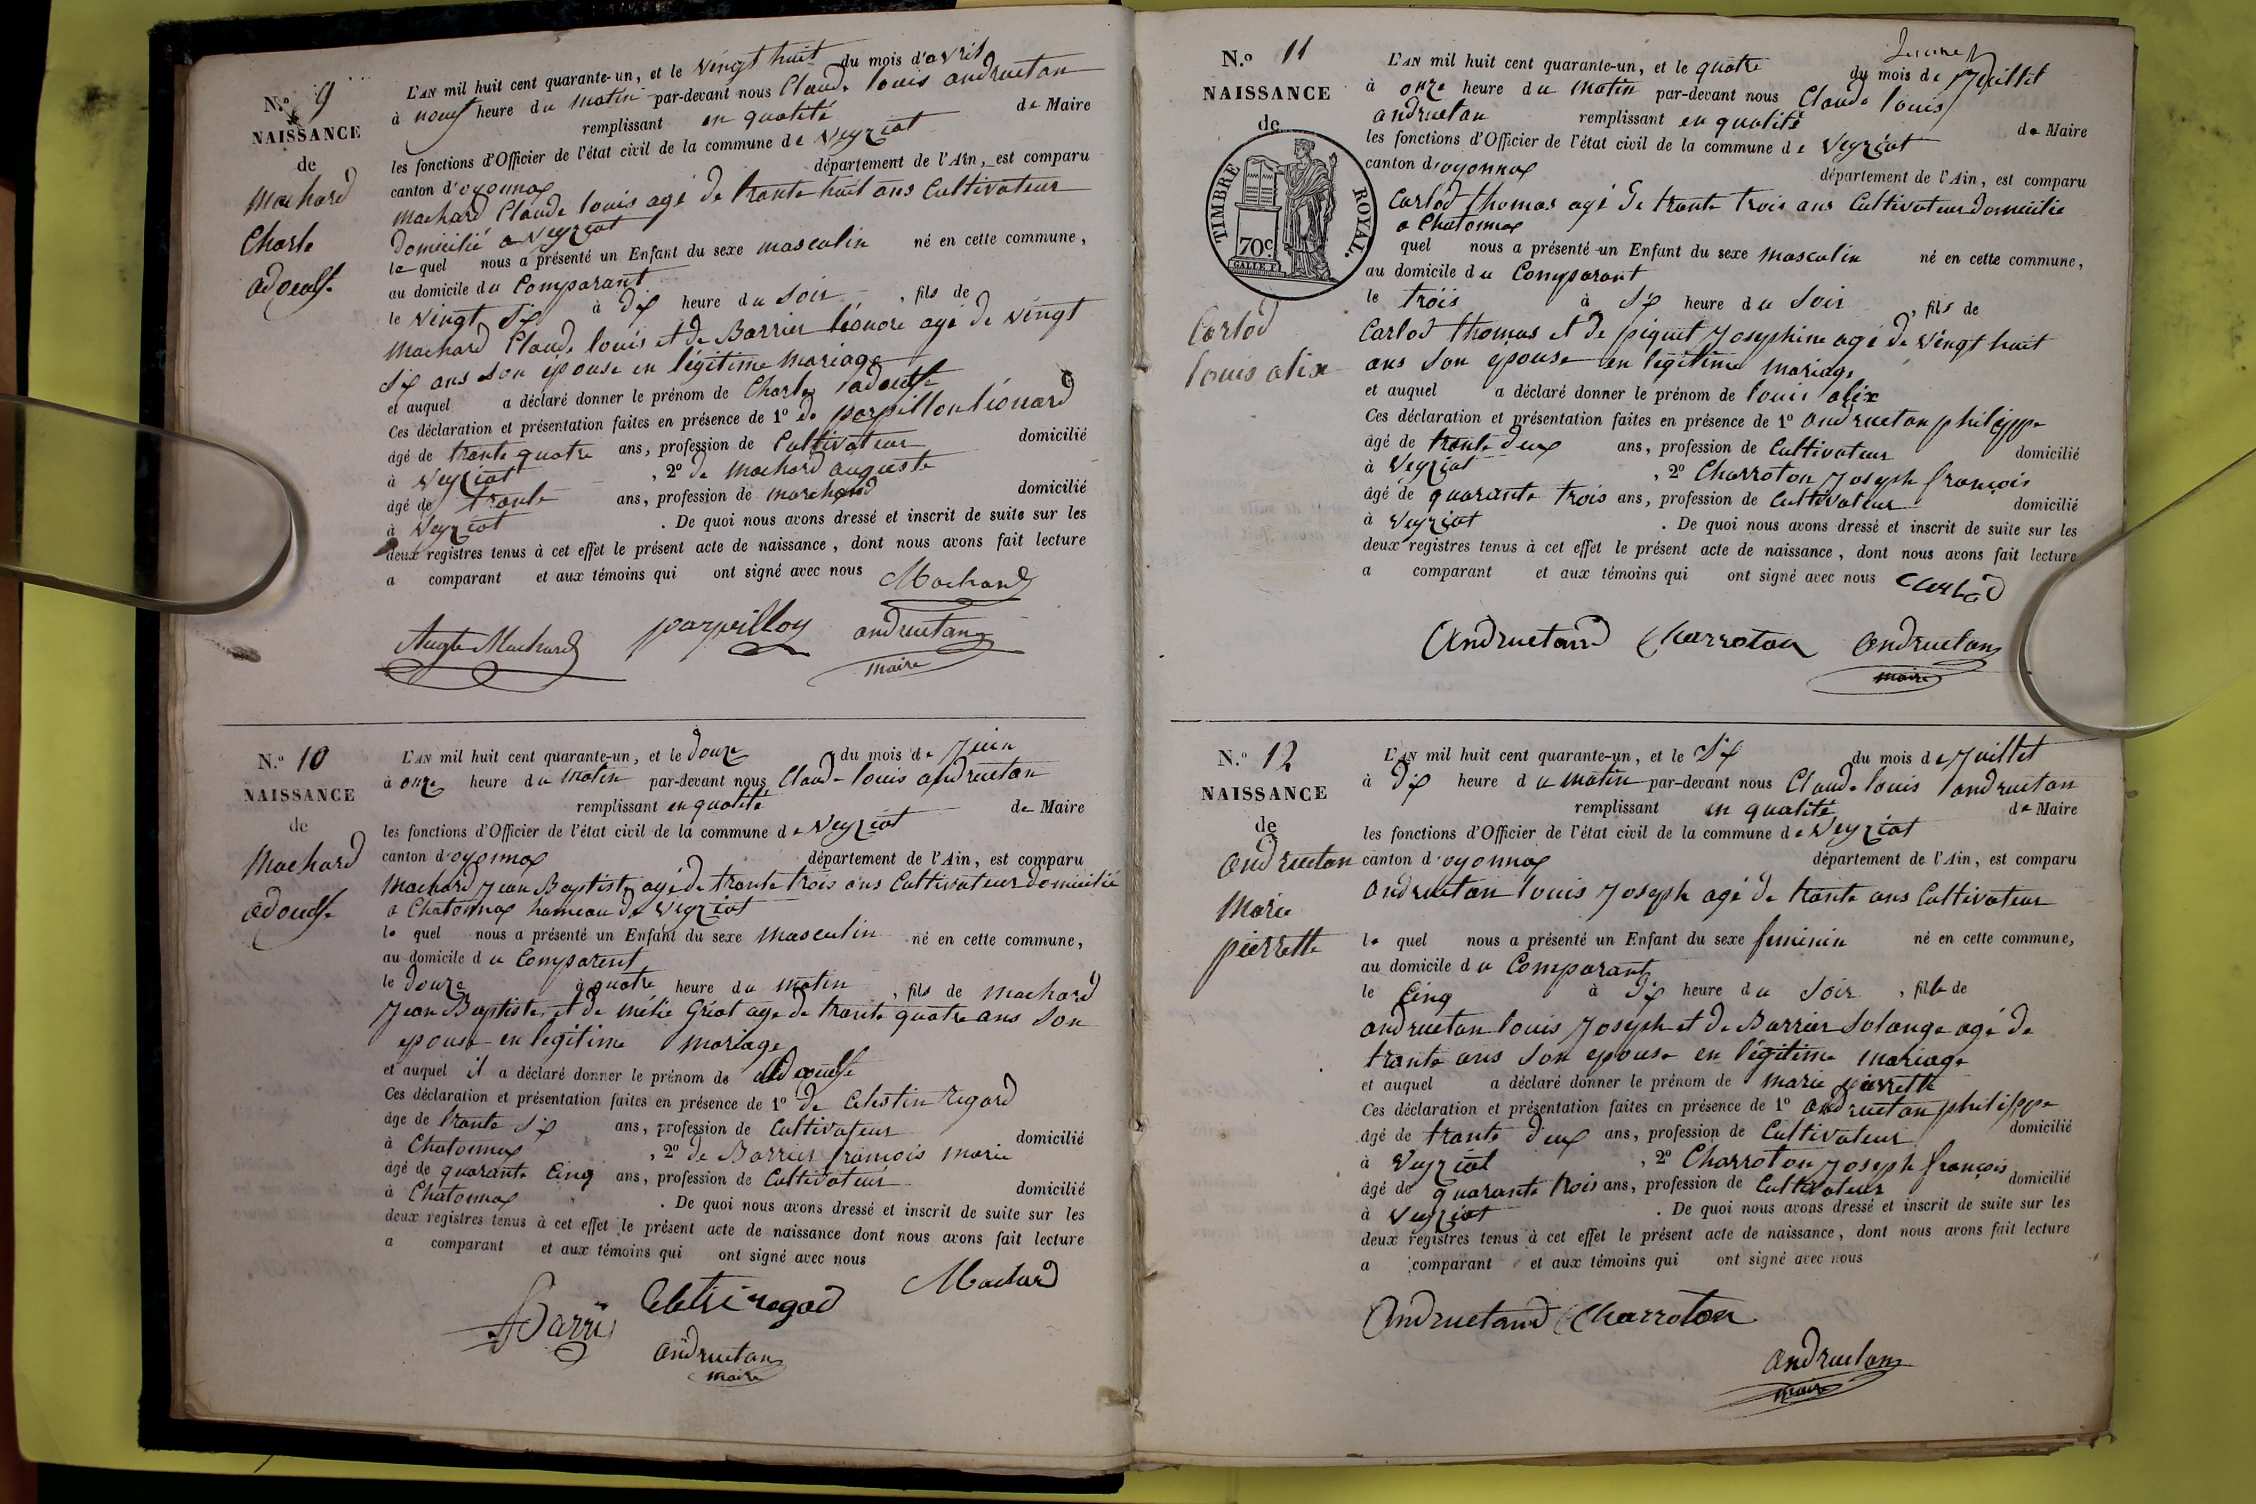 N.º 9
NAISSANCE
de
Machard
Charle
adoulfe
L'AN mil huit cent quarante-un, et le vingt huit du mois d'avril
à neuf heure du matin par-devant nous Claude louis andruetan
remplissant en qualité de Maire
les fonctions d'Officier de l'état civil de la commune de Veyziat
canton d'oyonnax département de l'Ain, est comparu
Machard Claude louis agé de trante huit ans Cultivateur
domicilié a Veyziat
le quel nous a présenté un Enfant du sexe masculin né en cette commune,
au domicile du Comparant
le vingt six à dix heure du soir , fils de
Machard Claude louis et de Barrier léonore agé de vingt
six ans son épouse en légitime mariage
et auquel a déclaré donner le prénom de Charle adoulfe
Ces déclaration et présentation faites en présence de 1º de parpillon léonard
âgé de trante quatre ans, profession de Cultivateur domicilié
à Veyziat , 2º de Machard auguste
âgé de trante ans, profession de marchand domicilié
à Veyziat . De quoi nous avons dressé et inscrit de suite sur les
deux registres tenus à cet effet le présent acte de naissance, dont nous avons fait lecture
a comparant et aux témoins qui ont signé avec nous Machard
Augte Machard parpillon andruetan
maire
N.º 10
NAISSANCE
de
Machard
adoulfe
L'AN mil huit cent quarante-un, et le douze du mois de Juin
à onze heure du matin par-devant nous Claude louis andruetan
remplissant en qualité de Maire
les fonctions d'Officier de l'état civil de la commune de Veyziat
canton d'oyonnax département de l'Ain, est comparu
Machard Jean Baptiste agé de trante trois ans Cultivateur domicilié
a Chatonnax hameau de Veyziat
le quel nous a présenté un Enfant du sexe masculin né en cette commune,
au domicile du Comparent
le douze à quatre heure du matin , fils de machard
Jean Baptiste et de mélie Gréot agé de trante quatre ans son
epouse en legitime mariage
et auquel il a déclaré donner le prénom de adoulfe
Ces déclaration et présentation faites en présence de 1º de Celestin Regard
âgé de trante six ans, profession de Cultivateur domicilié
à Chatonnax , 2º de Barrier françois marie
âgé de quarante Cinq ans, profession de Cultivateur domicilié
à Chatonnax . De quoi nous avons dressé et inscrit de suite sur les
deux registres tenus à cet effet le présent acte de naissance dont nous avons fait lecture
a comparant et aux témoins qui ont signé avec nous
Machard
andruetan
maire
N.º 11
NAISSANCE
de
TIMBRE ROYAL.
70c.
Carlod
louis alix
L'AN mil huit cent quarante-un, et le quatre du mois de Juillet
à onze heure du matin par-devant nous Claude louis
andruetan remplissant en qualité de Maire
les fonctions d'Officier de l'état civil de la commune de Veyziat
canton d'oyonnax département de l'Ain, est comparu
Carlod thomas agé de trante trois ans Cultivateur domicilié
a Chatonnax
quel nous a présenté un Enfant du sexe masculin né en cette commune,
au domicile du Comparant
le trois à six heure du soir , fils de
Carlod thomas et de piquet Josephine agé de vingt huit
ans son épouse en légitime mariage
et auquel a déclaré donner le prénom de louis alix
Ces déclaration et présentation faites en présence de 1º andruetan philippe
âgé de trante deux ans, profession de Cultivateur domicilié
à Veyziat , 2º Charroton Joseph françois
âgé de quarante trois ans, profession de Cultivateur domicilié
à Veyziat . De quoi nous avons dressé et inscrit de suite sur les
deux registres tenus à cet effet le présent acte de naissance, dont nous avons fait lecture
a comparant et aux témoins qui ont signé avec nous Carlod
Andruetand Charroton andruetan
maire
N.º 12
NAISSANCE
de
andruetan
Marie
pierrette
L'AN mil huit cent quarante-un, et le six du mois de Juillet
à dix heure du matin par-devant nous Claude louis andruetan
remplissant en qualité de Maire
les fonctions d'Officier de l'état civil de la commune de Veyziat
canton d'oyonnax département de l'Ain, est comparu
andruetan louis Joseph agé de trante ans Cultivateur
le quel nous a présenté un Enfant du sexe feminin né en cette commune,
au domicile du Comparant
le Cinq à dix heure du soir , fille de
andruetan louis Joseph et de Barrier Solange agé de
trante ans son epouse en légitime mariage
et auquel a déclaré donner le prénom de marie pierrette
Ces déclaration et présentation faites en présence de 1º andruetan philippe
âgé de trante deux ans, profession de Cultivateur domicilié
à Veyziat , 2º Charroton Joseph françois
âgé de quarante trois ans, profession de Cultivateur domicilié
à Veyziat . De quoi nous avons dressé et inscrit de suite sur les
deux registres tenus à cet effet le présent acte de naissance, dont nous avons fait lecture
a comparant et aux témoins qui ont signé avec nous
Andruetand Charroton
andruetan
maire